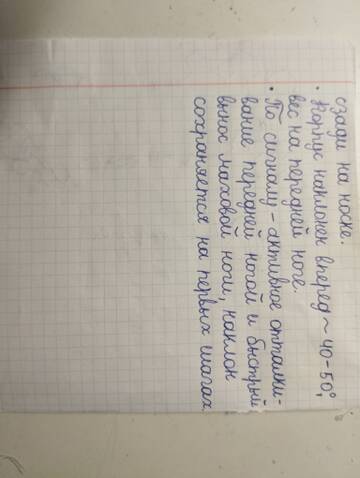 сзади на носке.
• Корпус наклонен вперед ~ 40-50°,
вес на передней ноге.
• По сигналу - активное отталки-
вание передней ногой и быстрый
вынос маховой ноги, наклон
сохраняется на первых шагах